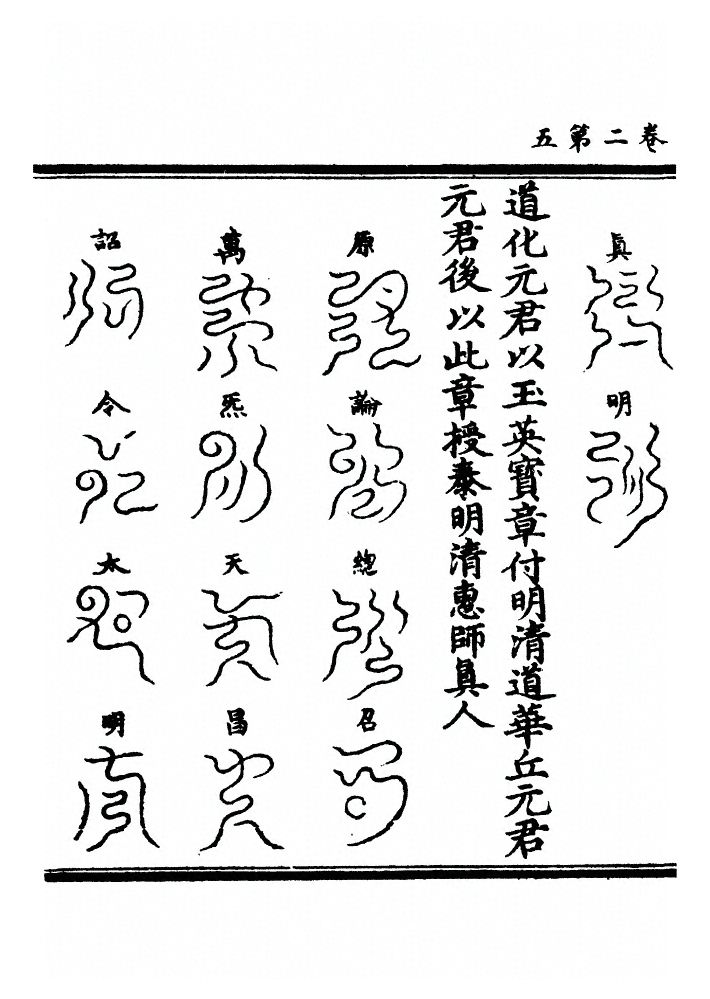 卷二第五
眞明
道化元君以玉英寶章付明清道華丘元君
元君後以此章授泰明清惠師眞人
原論總召
萬炁天昌
詔令太明